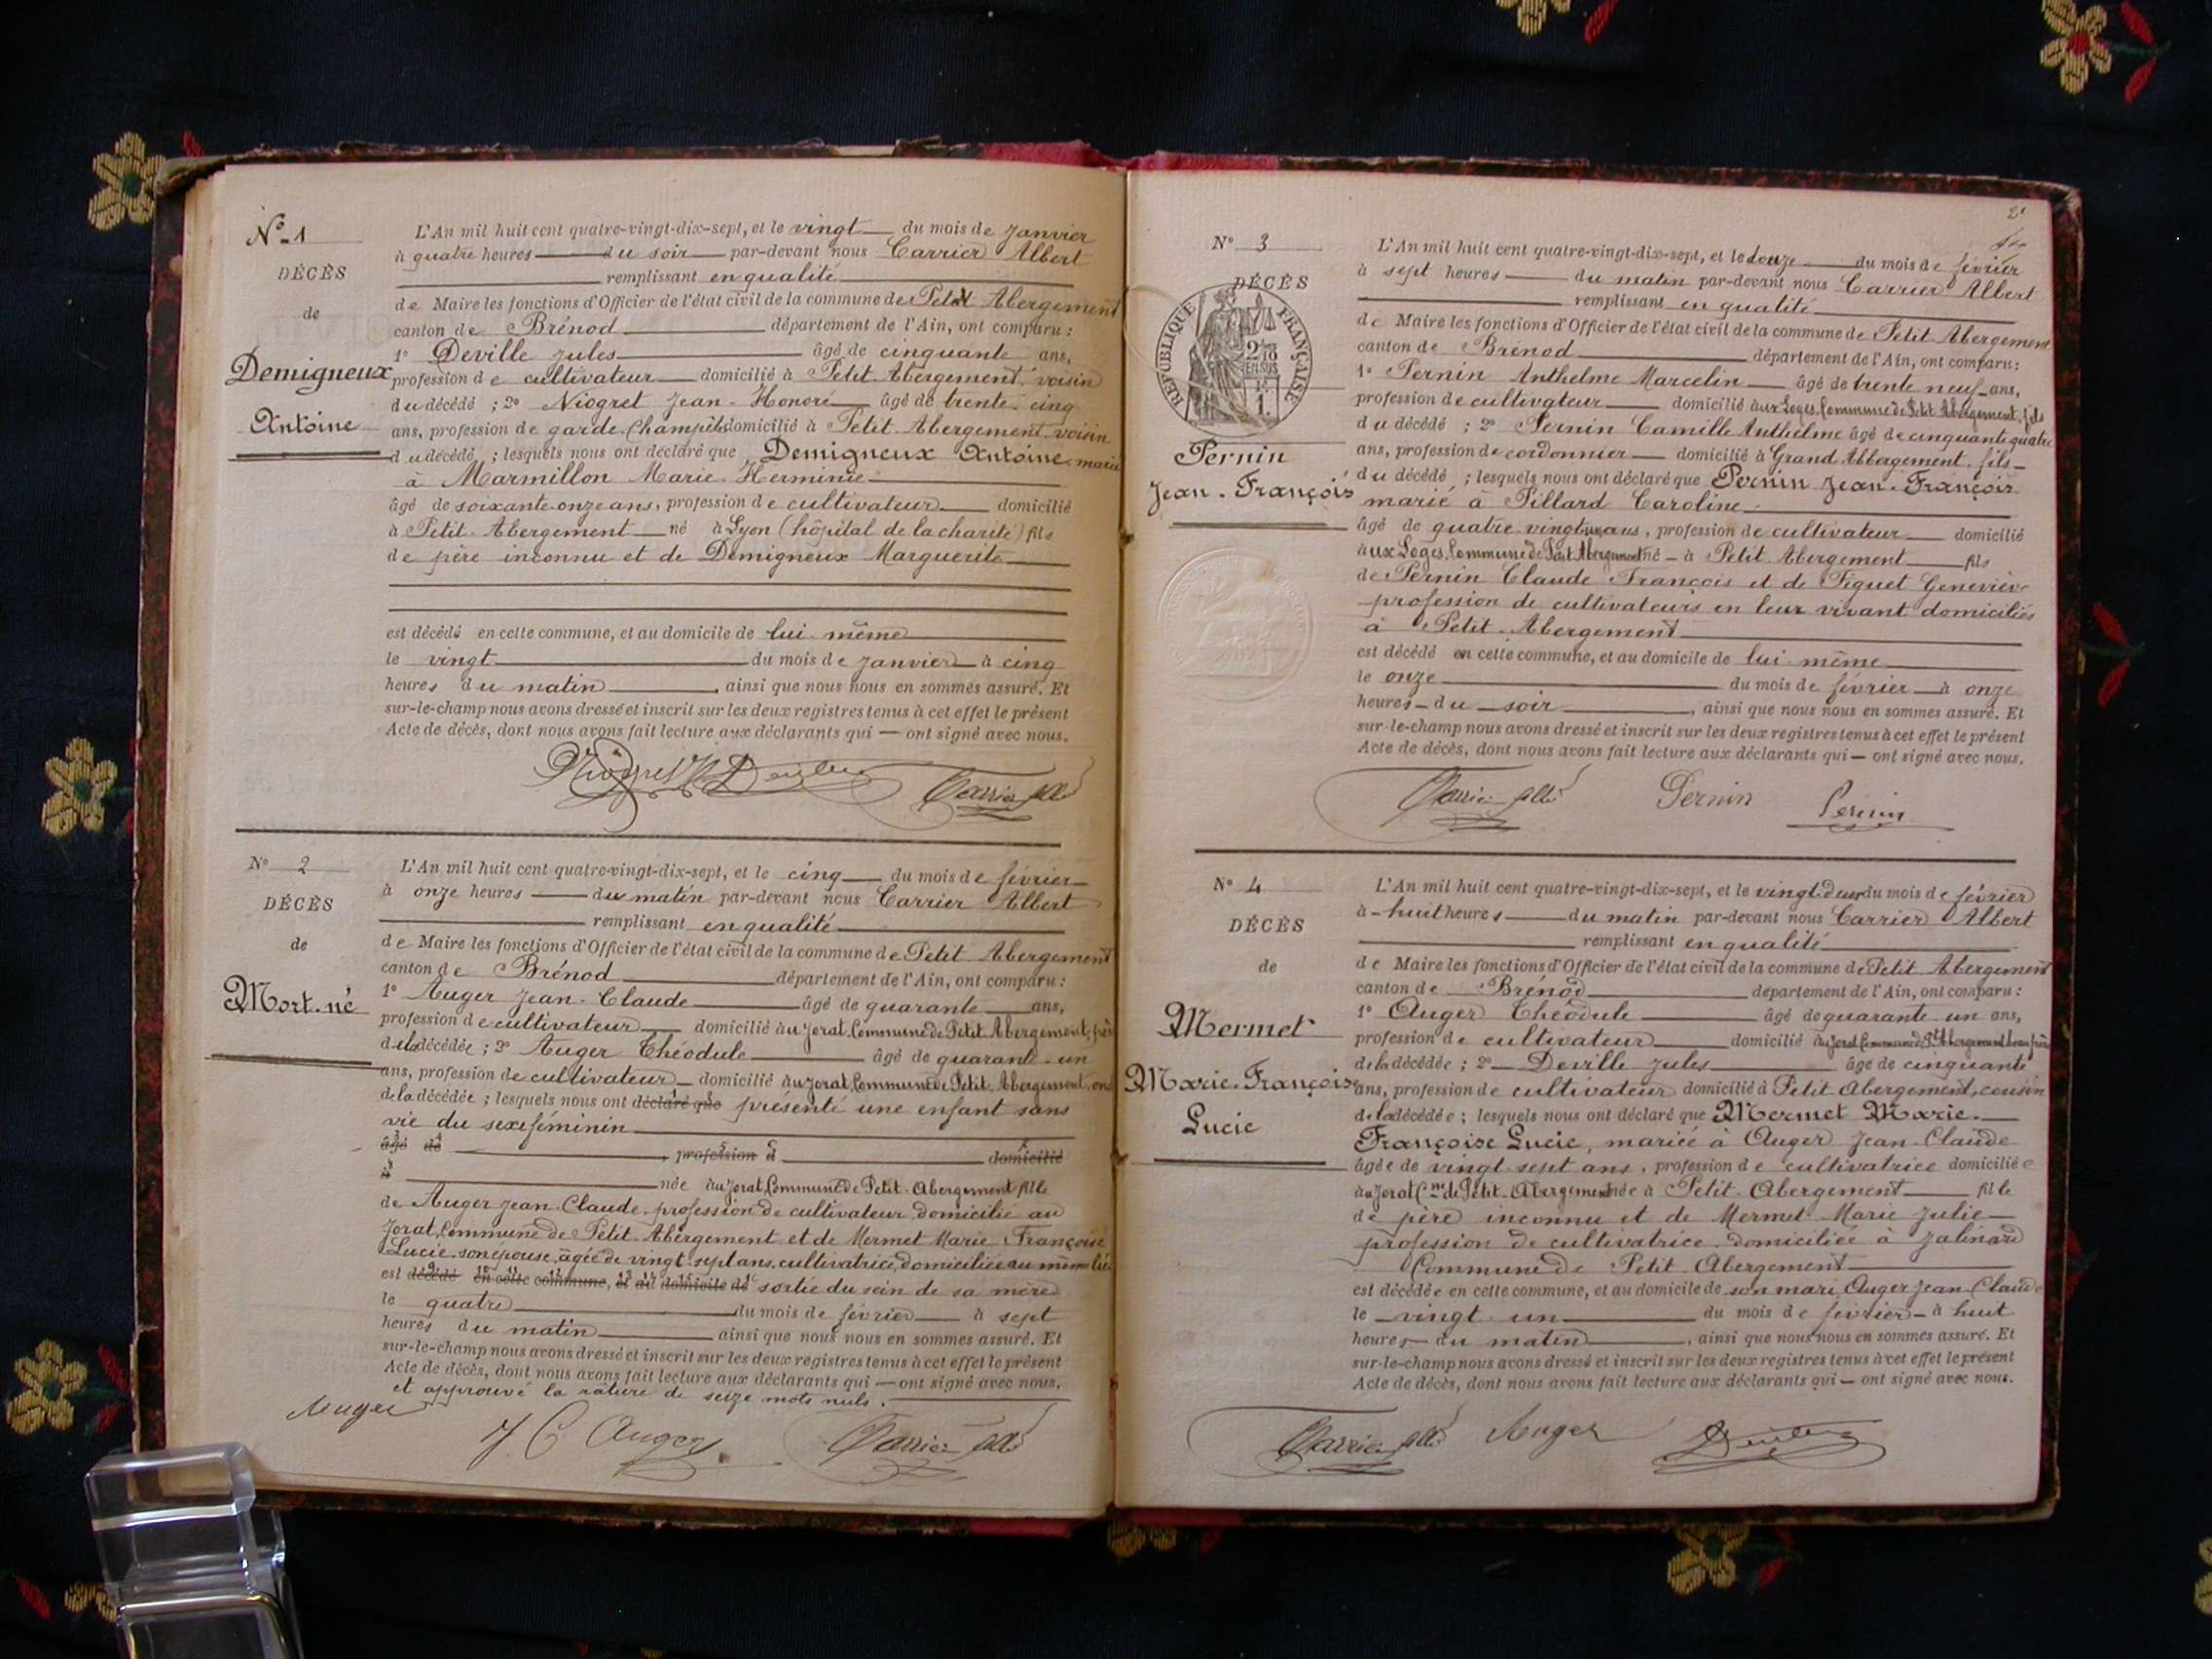 N° 1
DÉCÈS
de
Demigneux
Antoine
L'An mil huit cent quatre-vingt-dix-sept, et le vingt du mois de janvier
à quatre heures du soir par-devant nous Carrier Albert
remplissant en qualité
de Maire les fonctions d'Officier de l'état civil de la commune de Petit Abergement
canton de Brénod département de l'Ain, ont comparu :
1° Deville Jules âgé de cinquante ans,
profession de cultivateur domicilié à Petit-Abergement, voisin
du décédé ; 2° Niogret Jean-Honoré âgé de trente-cinq
ans, profession de garde-champêtre domicilié à Petit-Abergement voisin
du décédé ; lesquels nous ont déclaré que Demigneux Antoine marié
à Marmillon Marie-Herminie
âgé de soixante-onze ans, profession de cultivateur domicilié
à Petit-Abergement né à Lyon (hôpital de la charité) fils
de père inconnu et de Demigneux Marguerite
est décédé en cette commune, et au domicile de lui-même
le vingt du mois de janvier à cinq
heures du matin, ainsi que nous nous en sommes assuré. Et
sur-le-champ nous avons dressé et inscrit sur les deux registres tenus à cet effet le présent
Acte de décès, dont nous avons fait lecture aux déclarants qui — ont signé avec nous.
Niogret JH Deville Carrier Albt
N° 2
DÉCÈS
de
Mort-né
L'An mil huit cent quatre-vingt-dix-sept, et le cinq du mois de février
à onze heures du matin par-devant nous Carrier Albert
remplissant en qualité
de Maire les fonctions d'Officier de l'état civil de la commune de Petit-Abergement
canton de Brénod département de l'Ain, ont comparu :
1° Auger Jean-Claude âgé de quarante ans,
profession de cultivateur domicilié au Jorat, Commune de Petit-Abergement, père
de la décédée ; 2° Auger Théodule âgé de quarante-un
ans, profession de cultivateur domicilié au Jorat, Commune de Petit-Abergement, oncle
de la décédée ; lesquels nous ont déclaré que présenté une enfant sans
vie du sexe féminin
âgé de profession d domicilié
à née au Jorat, Commune de Petit-Abergement fille
de Auger Jean-Claude, profession de cultivateur, domicilié au
Jorat, Commune de Petit-Abergement et de Mermet Marie Françoise
Lucie, son épouse, âgée de vingt-sept ans, cultivatrice, domiciliée au même lieu
est décédé en cette commune, et au domicile de sortie du sein de sa mère
le quatre du mois de février à sept
heures du matin ainsi que nous nous en sommes assuré. Et
sur-le-champ nous avons dressé et inscrit sur les deux registres tenus à cet effet le présent
Acte de décès, dont nous avons fait lecture aux déclarants qui — ont signé avec nous.
et approuvé la rature de seize mots nuls.
Auger J C Auger Carrier Albt
2e
N° 3
DÉCÈS
RÉPUBLIQUE FRANÇAISE
2/10 EN SUS
1
Pernin
Jean-François
L'An mil huit cent quatre-vingt-dix-sept, et le douze du mois de février
à sept heures du matin par-devant nous Carrier Albert
remplissant en qualité
de Maire les fonctions d'Officier de l'état civil de la commune de Petit-Abergement
canton de Brénod département de l'Ain, ont comparu :
1° Pernin Anthelme Marcelin âgé de trente neuf ans,
profession de cultivateur domicilié aux Loges, Commune de Petit Abergement, fils
du décédé ; 2° Pernin Camille Anthelme âgé de cinquante quatre
ans, profession de cordonnier domicilié à Grand Abbergement, fils
du décédé ; lesquels nous ont déclaré que Pernin Jean-François
marié à Pillard Caroline
âgé de quatre-vingt ans, profession de cultivateur domicilié
aux Loges, Commune de Petit Abergement né à Petit Abergement fils
de Pernin Claude François et de Figuet Geneviève
profession de cultivateurs en leur vivant domiciliés
à Petit-Abergement
est décédé en cette commune, et au domicile de lui-même
le onze du mois de février à onze
heures du soir, ainsi que nous nous en sommes assuré. Et
sur-le-champ nous avons dressé et inscrit sur les deux registres tenus à cet effet le présent
Acte de décès, dont nous avons fait lecture aux déclarants qui — ont signé avec nous.
Carrier Albt Pernin Pernin
N° 4
DÉCÈS
de
Mermet
Marie-Françoise
Lucie
L'An mil huit cent quatre-vingt-dix-sept, et le vingt-deux du mois de février
à huit heures du matin par-devant nous Carrier Albert
remplissant en qualité
de Maire les fonctions d'Officier de l'état civil de la commune de Petit-Abergement
canton de Brénod département de l'Ain, ont comparu :
1° Auger Théodule âgé de quarante-un ans,
profession de cultivateur domicilié au Jorat Commune de Pt Abergement beau-frère
de la décédée ; 2° Deville Jules âgé de cinquante
ans, profession de cultivateur domicilié à Petit Abergement, cousin
de la décédée ; lesquels nous ont déclaré que Mermet Marie-
Françoise Lucie, mariée à Auger Jean-Claude
âgée de vingt-sept ans, profession de cultivatrice domiciliée
au Jorat Cne de Petit-Abergement née à Petit-Abergement fille
de père inconnu et de Mermet Marie Julie
profession de cultivatrice, domiciliée à Jalinard
Commune de Petit-Abergement
est décédée en cette commune, et au domicile de son mari Auger Jean Claude
le vingt-un du mois de février à huit
heures du matin, ainsi que nous nous en sommes assuré. Et
sur-le-champ nous avons dressé et inscrit sur les deux registres tenus à cet effet le présent
Acte de décès, dont nous avons fait lecture aux déclarants qui — ont signé avec nous.
Carrier Albt Auger Deville